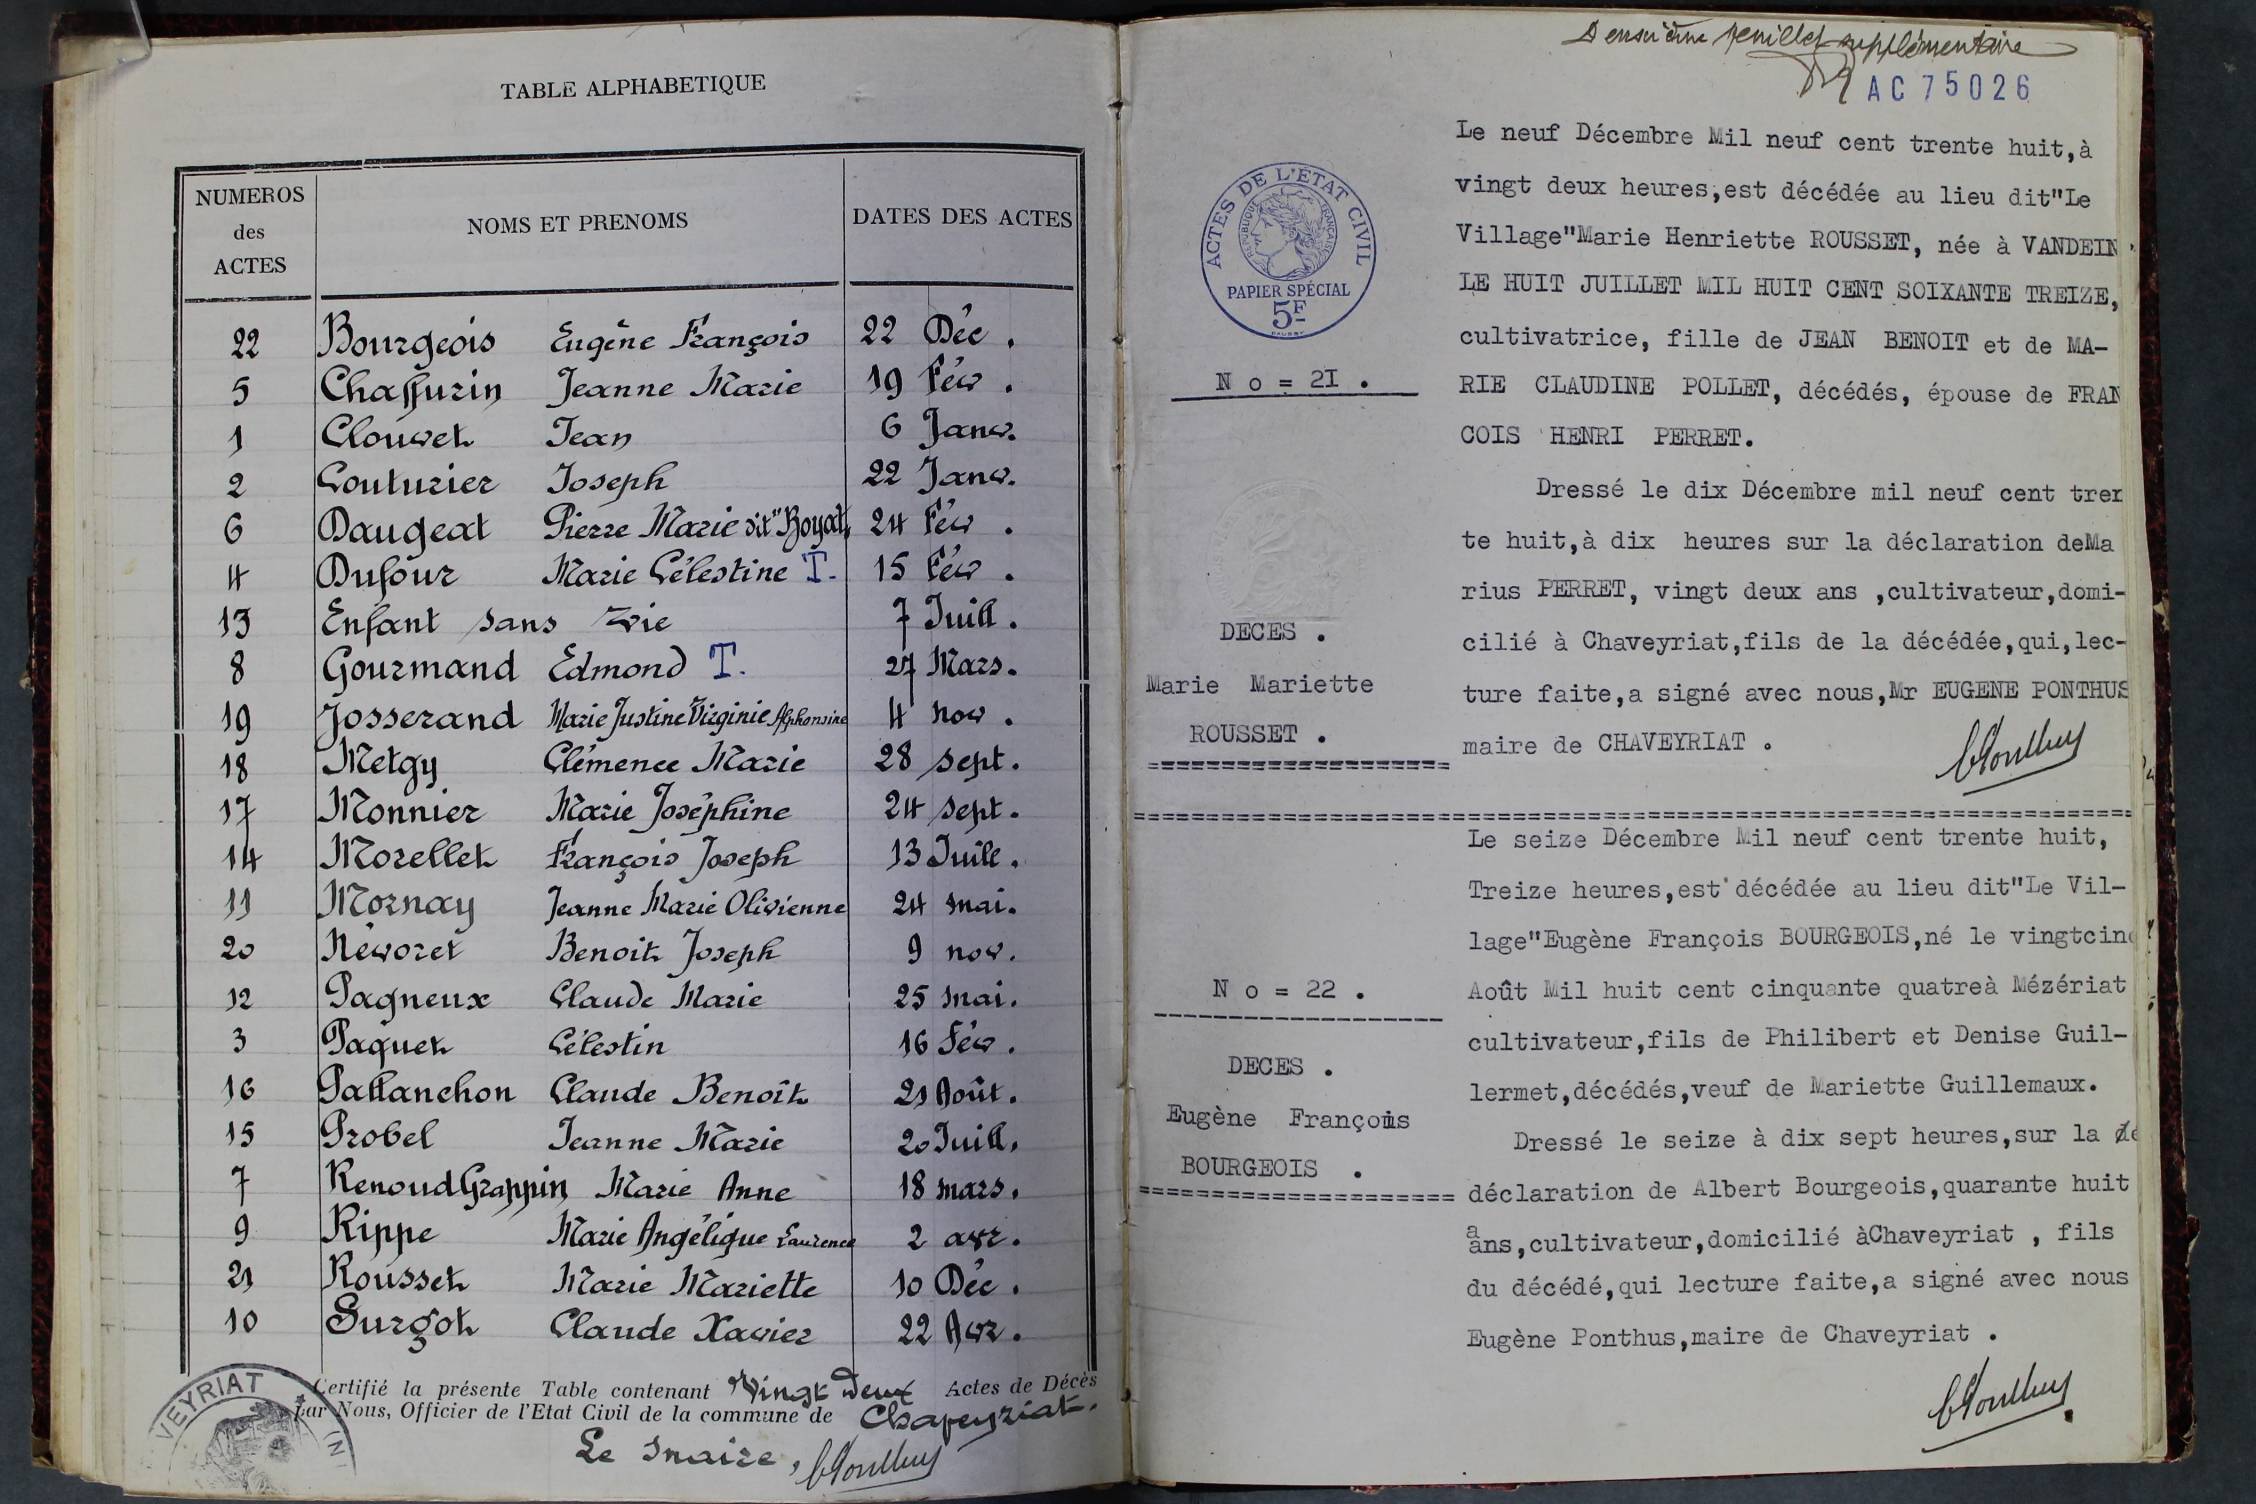 TABLE ALPHABETIQUE
NUMEROS des ACTES NOMS ET PRENOMS DATES DES ACTES
22 Bourgeois Eugène François 22 Déc.
5 Chaffurin Jeanne Marie 19 Fév.
1 Clouvet Jean 6 Janv.
2 Couturier Joseph 22 Janv.
6 Daugeat Pierre Marie dit "Boyat" 24 Fév.
4 Dufour Marie Célestine T. 15 Fév.
13 Enfant sans vie 7 Juill.
8 Gourmand Edmond T. 27 Mars.
19 Josserand Marie Justine Virginie Alphonsine 4 nov.
18 Metgy Clémence Marie 28 sept.
17 Monnier Marie Joséphine 24 sept.
14 Morellet François Joseph 13 Juill.
11 Mornay Jeanne Marie Olivienne 24 mai.
20 Névoret Benoit Joseph 9 nov.
12 Pagneux Claude Marie 25 mai.
3 Paquet Célestin 16 Fév.
16 Pallanchon Claude Benoît 21 Août.
15 Probel Jeanne Marie 20 Juill.
7 Renoud Grappin Marie Anne 18 mars.
9 Rippe Marie Angélique Laurence 2 avr.
21 Rousset Marie Mariette 10 Déc.
10 Surgot Claude Xavier 22 Avr.
Certifié la présente Table contenant Vingt deux Actes de Décès
par Nous, Officier de l'Etat Civil de la commune de Chaveyriat.
Le maire,
VEYRIAT
Deuxième feuillet supplémentaire
AC 75026
ACTES DE L'ETAT CIVIL
REPUBLIQUE FRANÇAISE
PAPIER SPÉCIAL
5F
N o = 2I .
DECES .
Marie Mariette
ROUSSET .
Le neuf Décembre Mil neuf cent trente huit,à
vingt deux heures,est décédée au lieu dit"Le
Village"Marie Henriette ROUSSET, née à VANDEIN
LE HUIT JUILLET MIL HUIT CENT SOIXANTE TREIZE,
cultivatrice, fille de JEAN BENOIT et de MA-
RIE CLAUDINE POLLET, décédés, épouse de FRAN
COIS HENRI PERRET.
Dressé le dix Décembre mil neuf cent tren
te huit,à dix heures sur la déclaration deMa
rius PERRET, vingt deux ans ,cultivateur,domi-
cilié à Chaveyriat,fils de la décédée,qui,lec-
ture faite,a signé avec nous,Mr EUGENE PONTHUS
maire de CHAVEYRIAT .
N o = 22 .
DECES .
Eugène François
BOURGEOIS .
Le seize Décembre Mil neuf cent trente huit,
Treize heures,est décédée au lieu dit"Le Vil-
lage"Eugène François BOURGEOIS,né le vingtcinq
Août Mil huit cent cinquante quatreà Mézériat
cultivateur,fils de Philibert et Denise Guil-
lermet,décédés,veuf de Mariette Guillemaux.
Dressé le seize à dix sept heures,sur la de
déclaration de Albert Bourgeois,quarante huit
ans,cultivateur,domicilié àChaveyriat , fils
du décédé,qui lecture faite,a signé avec nous
Eugène Ponthus,maire de Chaveyriat .